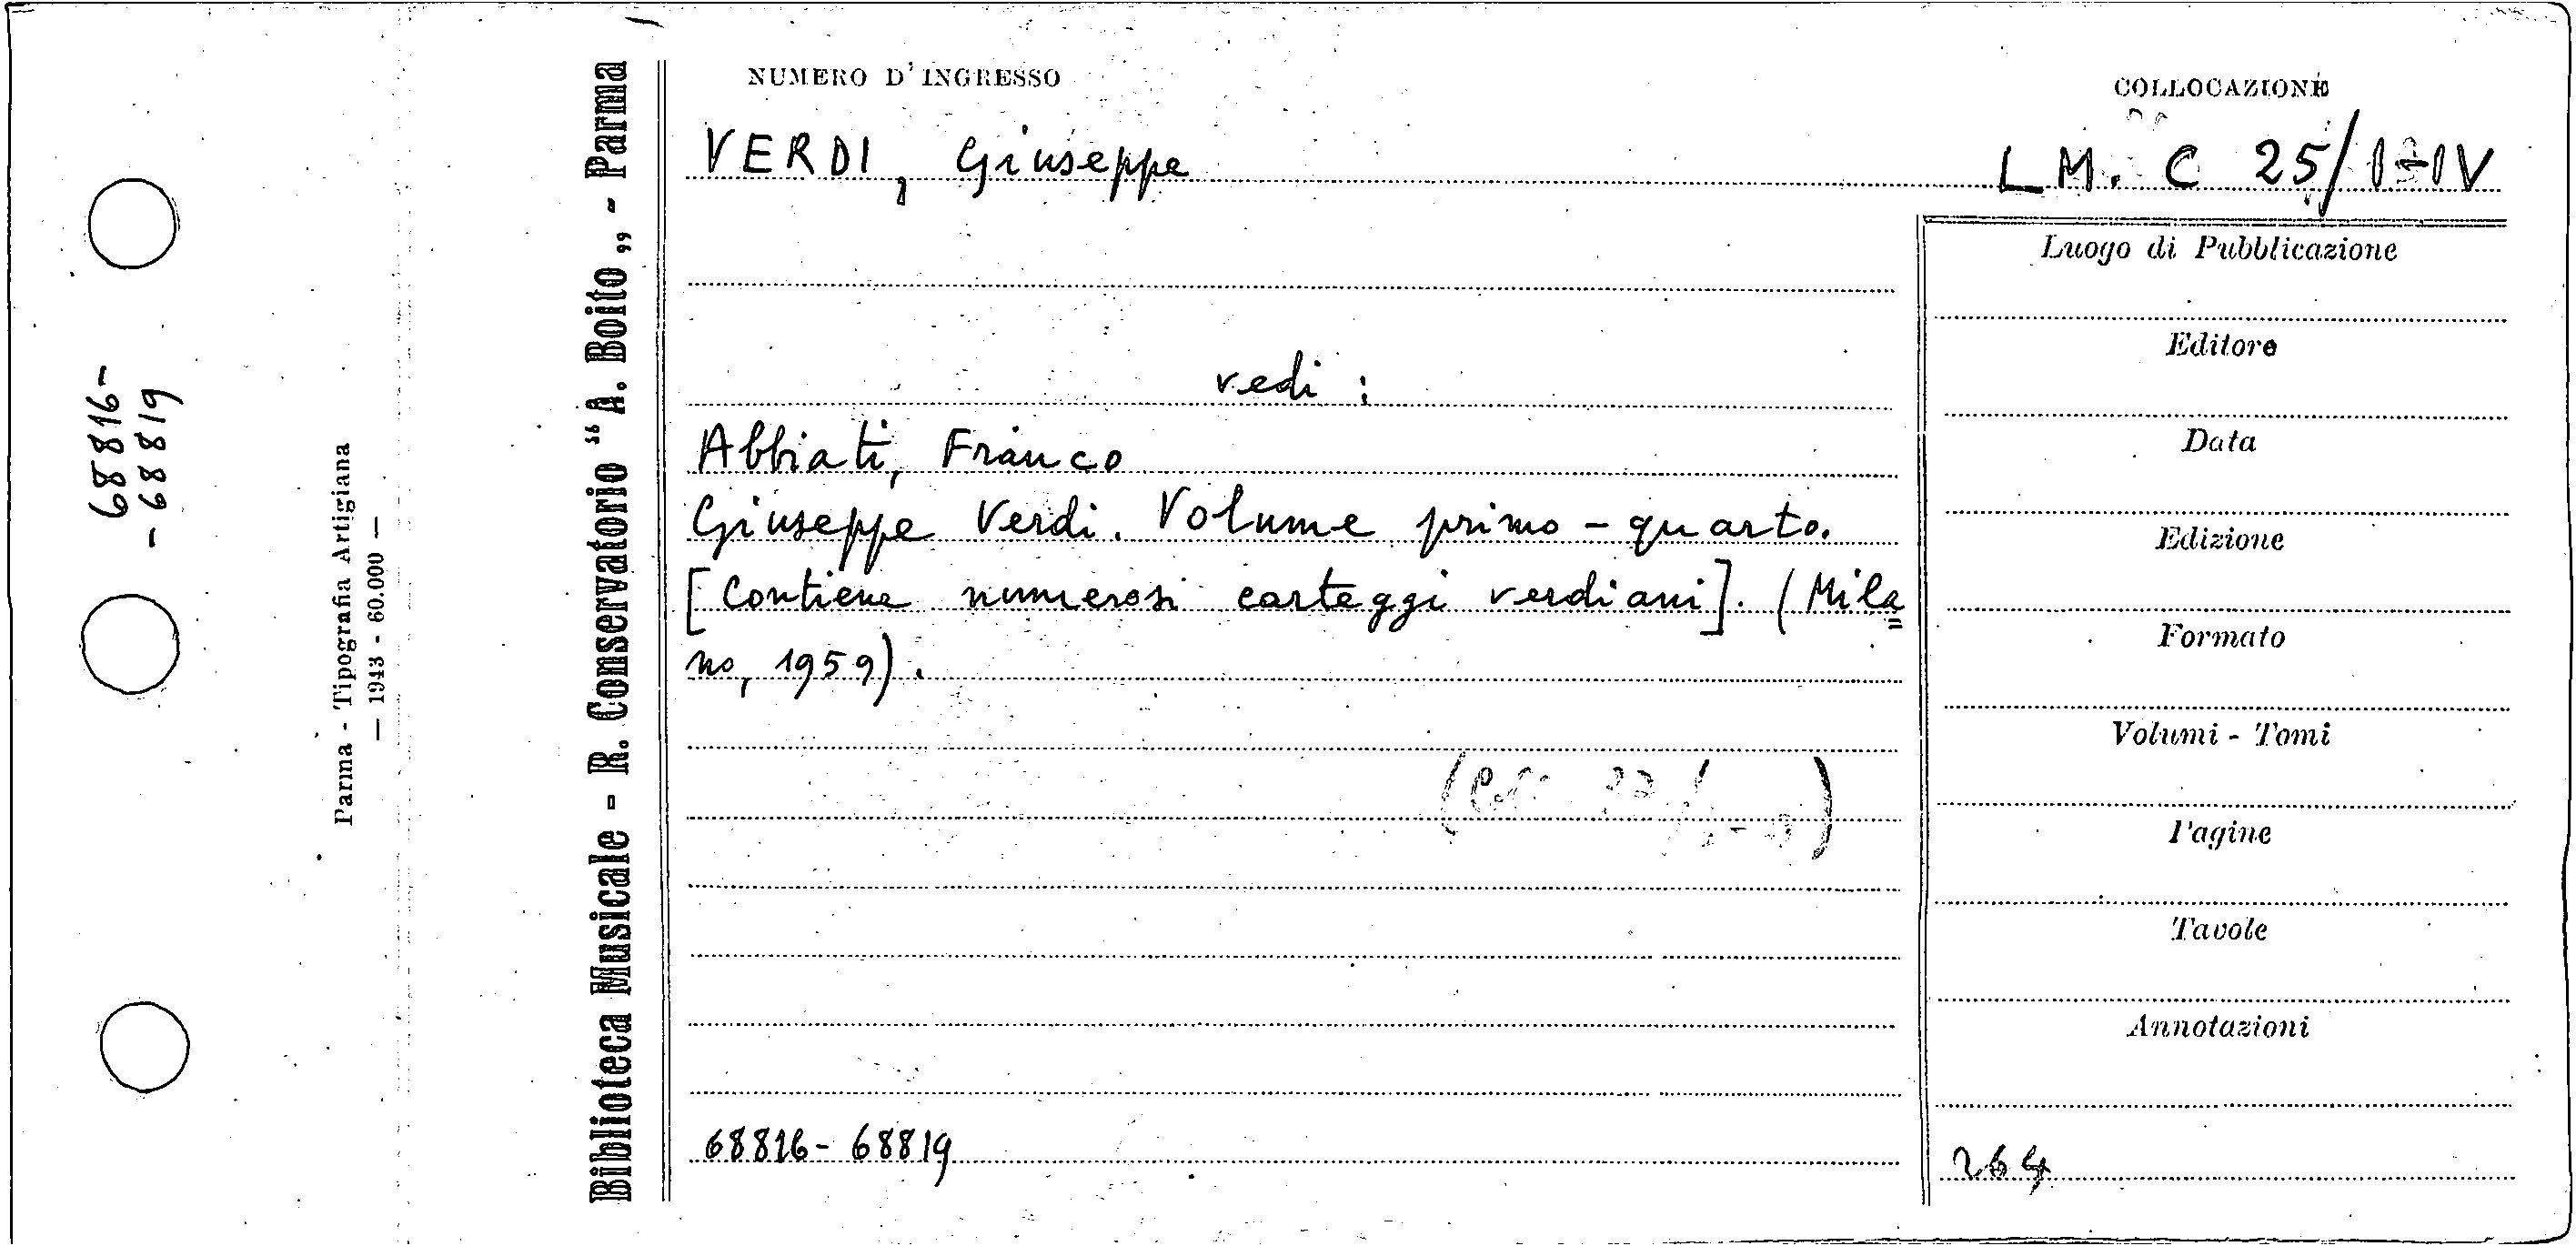 68816-
-68819
Parma - Tipografia Artigiana
— 1943 - 60.000 —
Biblioteca Musicale - R. Conservatorio "A. Boito„ - Parma
NUMERO D'INGRESSO
COLLOCAZIONE
VERDI, Giuseppe
LM. C 25/I-IV
Luogo di Pubblicazione
Editore
vedi:
Data
Abbiati, Franco
Giuseppe Verdi. Volume primo - quarto.
Edizione
[Contiene numerosi carteggi verdiani]. (Mila=
Formato
no, 1959).
Volumi - Tomi
Pagine
Tavole
Annotazioni
68816 - 68819
264